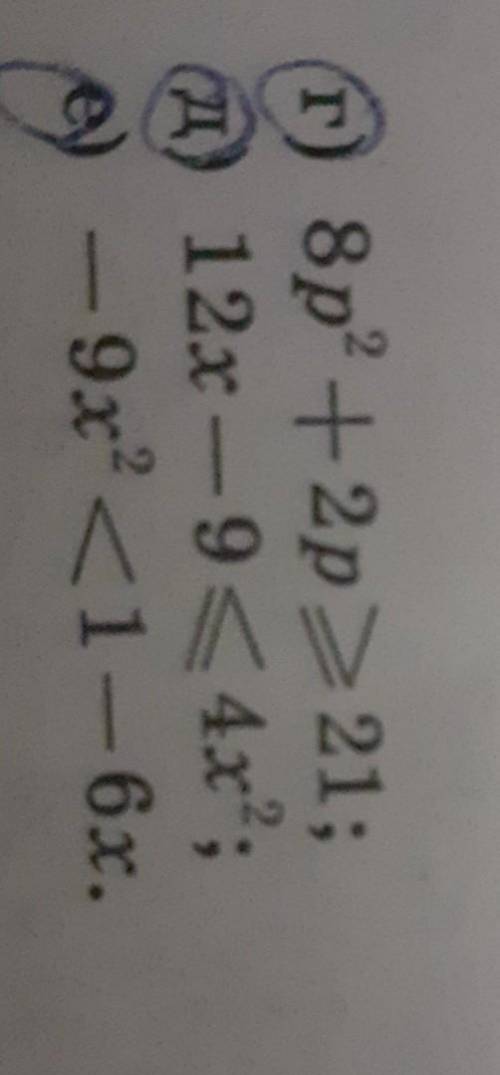 г) 8p² + 2p ⩾ 21;
д) 12x − 9 ⩽ 4x²;
е) −9x² < 1 − 6x.